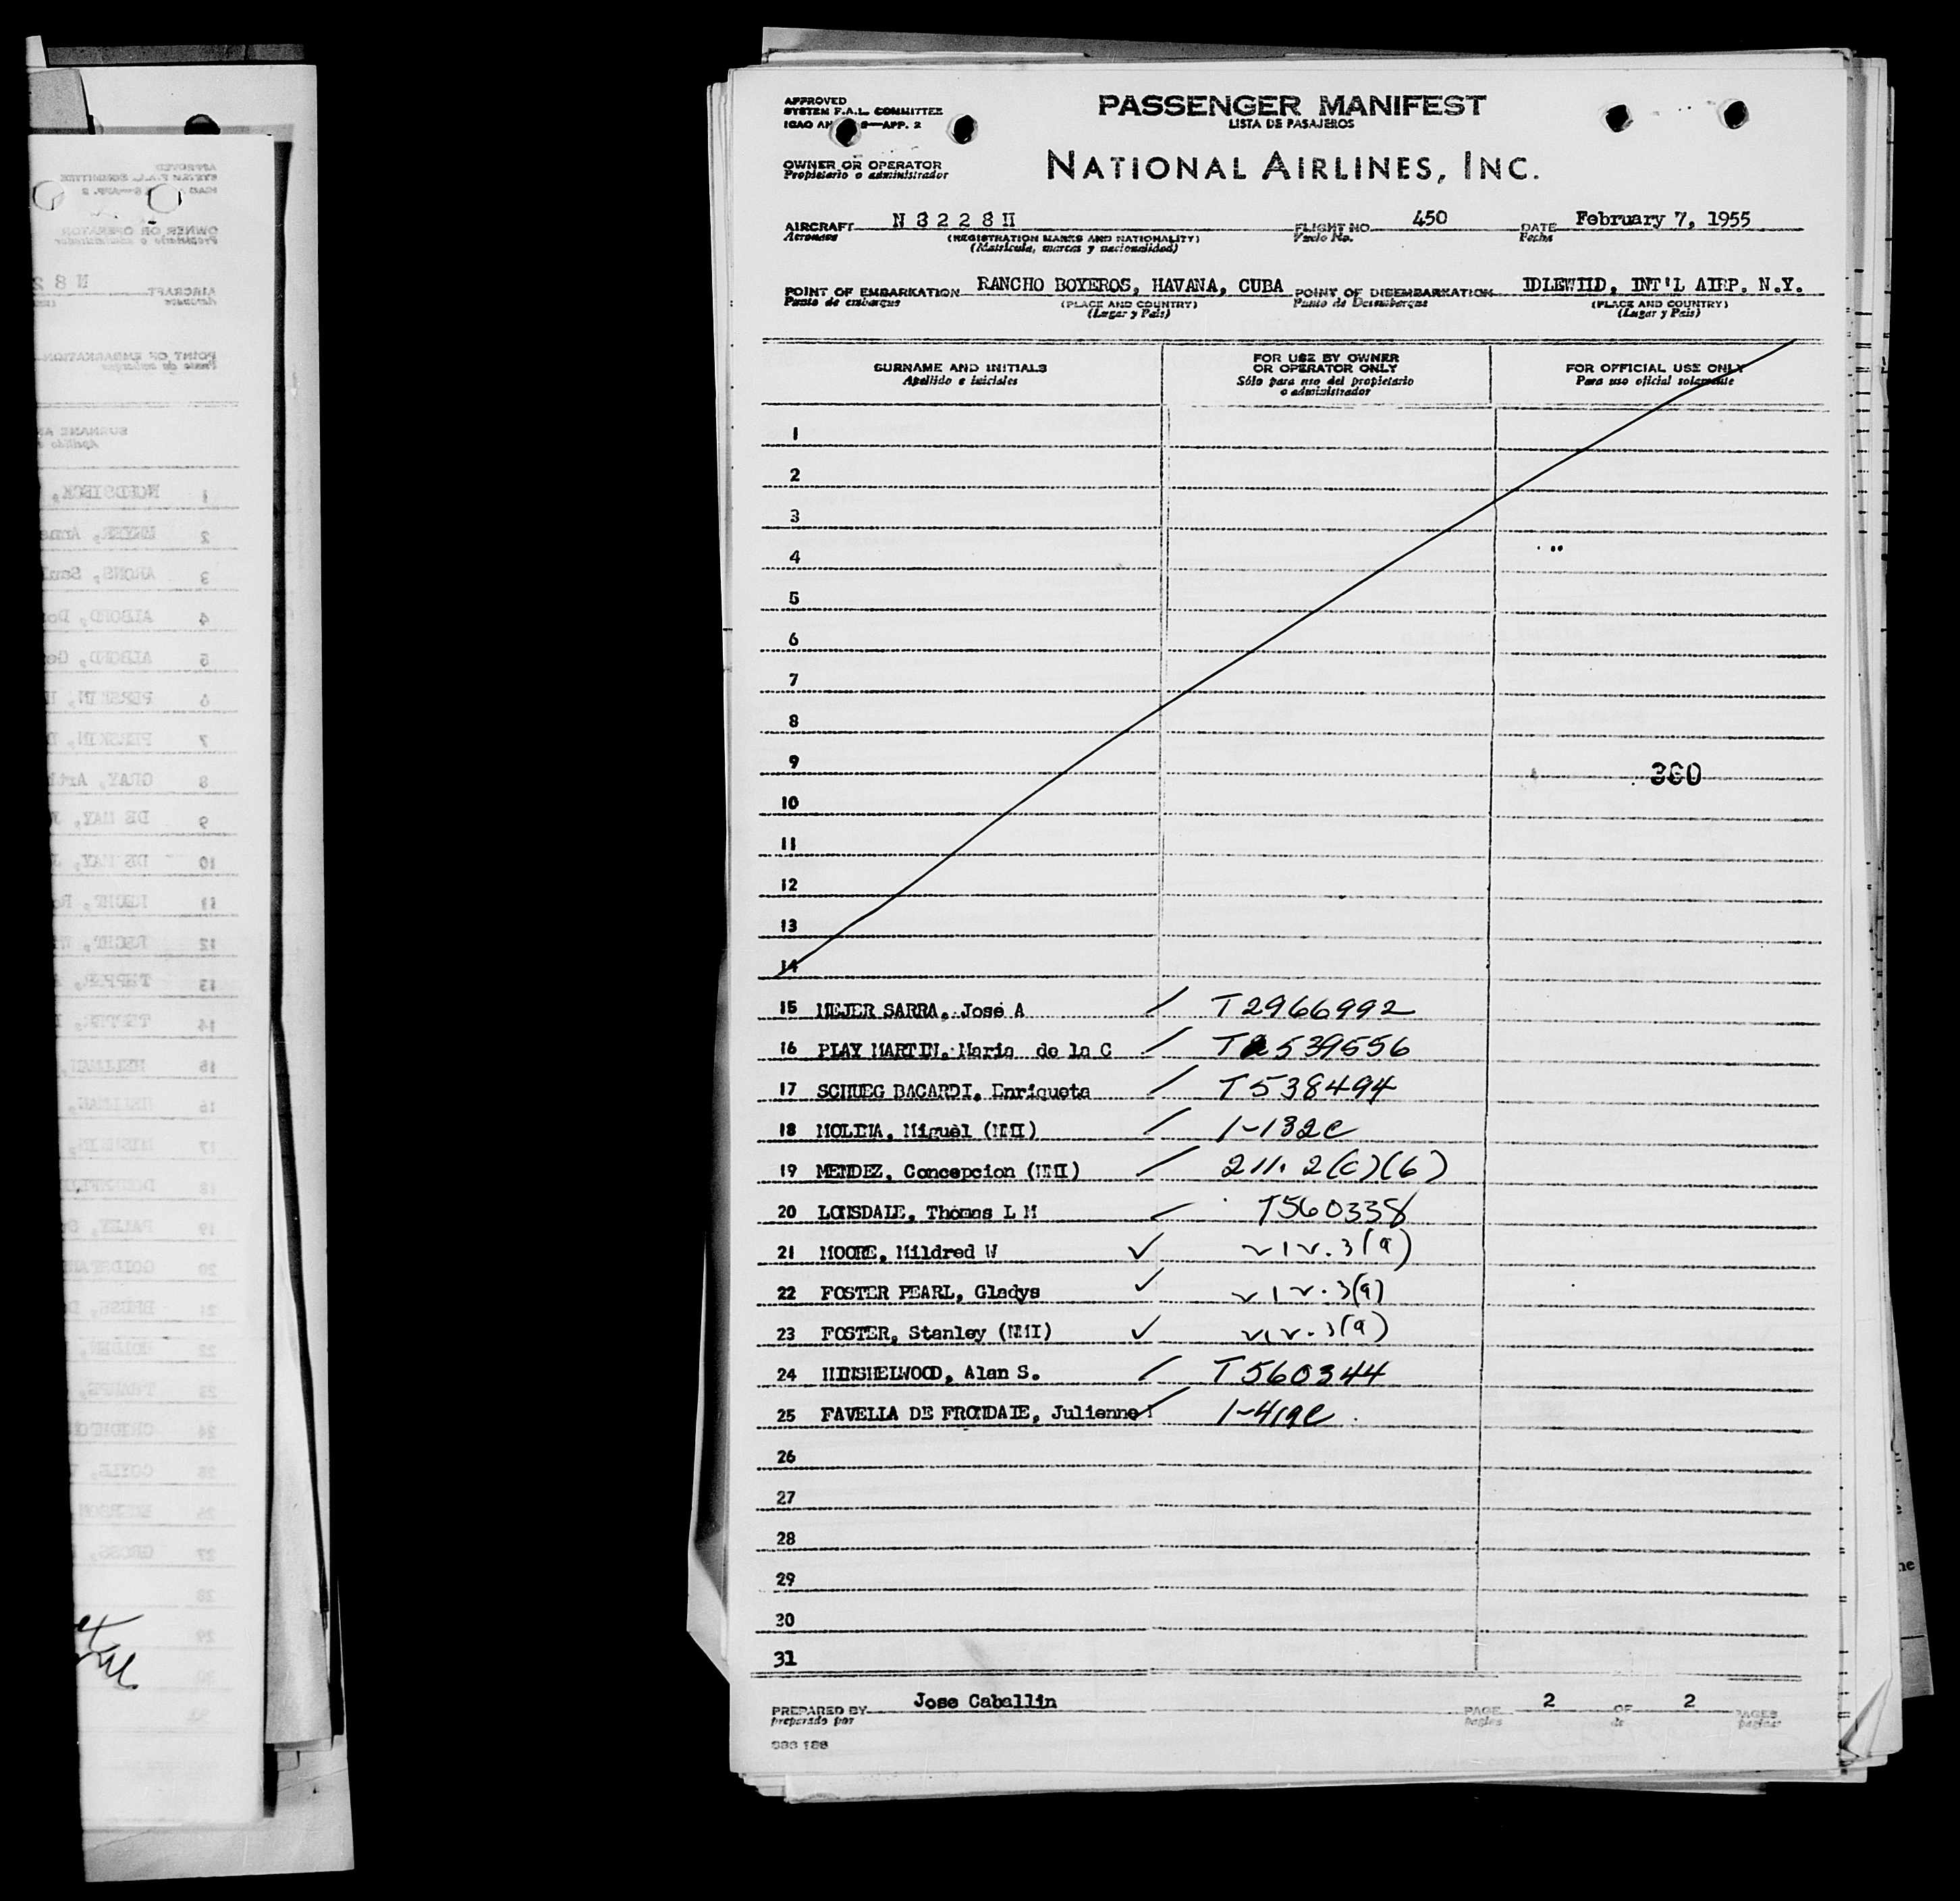 APPROVED
SYSTEM F.A.L. COMMITTEE
ICAO AN 9—APP. 2
PASSENGER MANIFEST
LISTA DE PASAJEROS
OWNER OR OPERATOR
Propietario o administrador
NATIONAL AIRLINES, INC.
AIRCRAFT N 8 2 2 8 H FLIGHT NO. 450 DATE February 7, 1955
Aeronave (REGISTRATION MARKS AND NATIONALITY) Vuelo No. Fecha
(Matrícula, marcas y nacionalidad)
POINT OF EMBARKATION RANCHO BOYEROS, HAVANA, CUBA POINT OF DISEMBARKATION IDLEWILD, INT'L AIRP. N.Y.
Punto de embarque (PLACE AND COUNTRY) Punto de Desembarque (PLACE AND COUNTRY)
(Lugar y País) (Lugar y País)
SURNAME AND INITIALS FOR USE BY OWNER OR OPERATOR ONLY FOR OFFICIAL USE ONLY
Apellido e iniciales Sólo para uso del propietario o administrador Para uso oficial solamente
1
2
3
4
5
6
7
8
9
360
10
11
12
13
14
15 MEJER SARRA, José A T2966992
16 PLAY MARTIN, Maria de la C T2539556
17 SCHUEG BACARDI, Enriqueta T538494
18 MOLINA, Miguel (NMI) 1-132c
19 MENDEZ, Concepcion (NMI) 211.2(c)(6)
20 LONSDALE, Thomas L M T560338
21 MOORE, Mildred W ✓ 212.3(a)
22 FOSTER PEARL, Gladys ✓ 212.3(a)
23 FOSTER, Stanley (NMI) ✓ 212.3(a)
24 HINSHELWOOD, Alan S. T560344
25 FAVELLA DE FRONDAIE, Julienne
26
27
28
29
30
31
PREPARED BY Jose Caballin PAGE 2 OF 2 PAGES
preparado por pagina de paginas